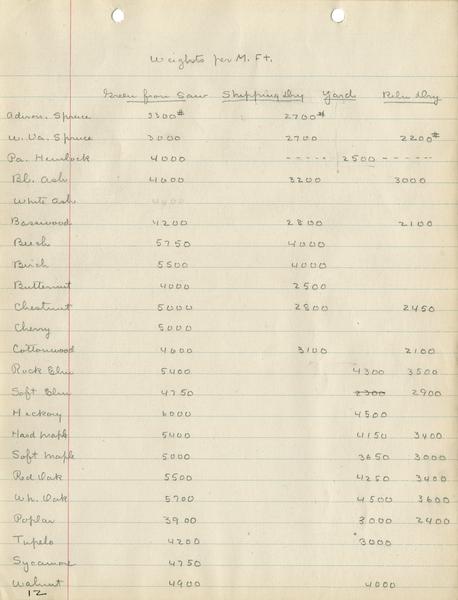 Weights per M. Ft.
Green from Saw Shipping Dry Yard Kiln Dry
Adiron. Spruce 3300# 2700#
W. Va. Spruce 3000 2700 2200#
Pa. Hemlock 4000 ----- 2500 ------
Bl. Ash 4000 3200 3000
White Ash
Basswood 4200 2800 2100
Beech 5750 4000
Birch 5500 4000
Butternut 4000 2500
Chestnut 5000 2800 2450
Cherry 5000
Cottonwood 4600 3100 2100
Rock Elm 5400 4300 3500
Soft Elm 4750 2300 2900
Hickory 6000 4500
Hard Maple 5400 4150 3400
Soft Maple 5000 3650 3000
Red Oak 5500 4250 3400
Wh. Oak 5700 4500 3600
Poplar 3900 3000 2400
Tupelo 4200 3000
Sycamore 4750
Walnut 4900 4000
12